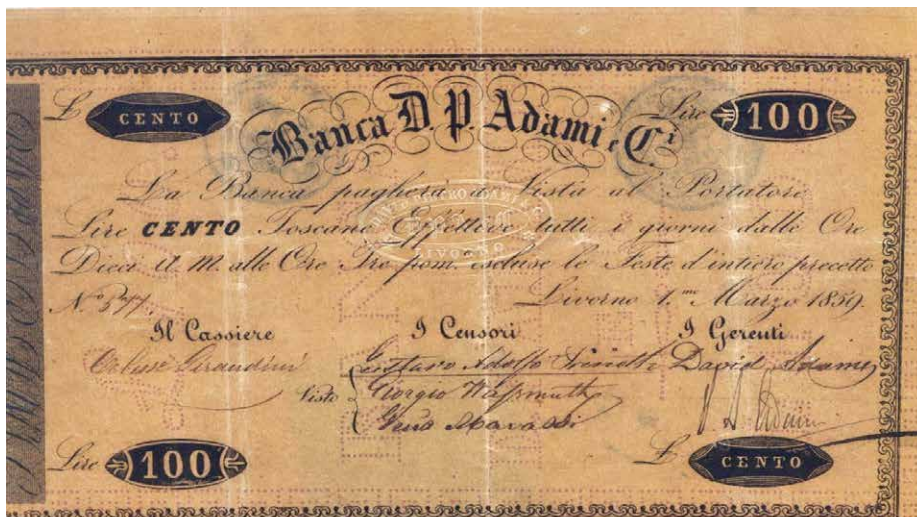 £ CENTO
Banca D. P. Adami e C.i
Lire 100
La Banca pagherà a Vista al Portatore
Lire CENTO Toscane Effettive tutti i giorni dalle Ore
Dieci A. M. alle Ore Tre pom. escluse le Feste d'intiero precetto
Livorno 1.mo Marzo 1859.
Il Cassiere I Censori I Gerenti
Gustavo Adolfo David Adami
Visto Giorgio Wassmuth
Adami
Lire 100
£ CENTO
LIVORNO